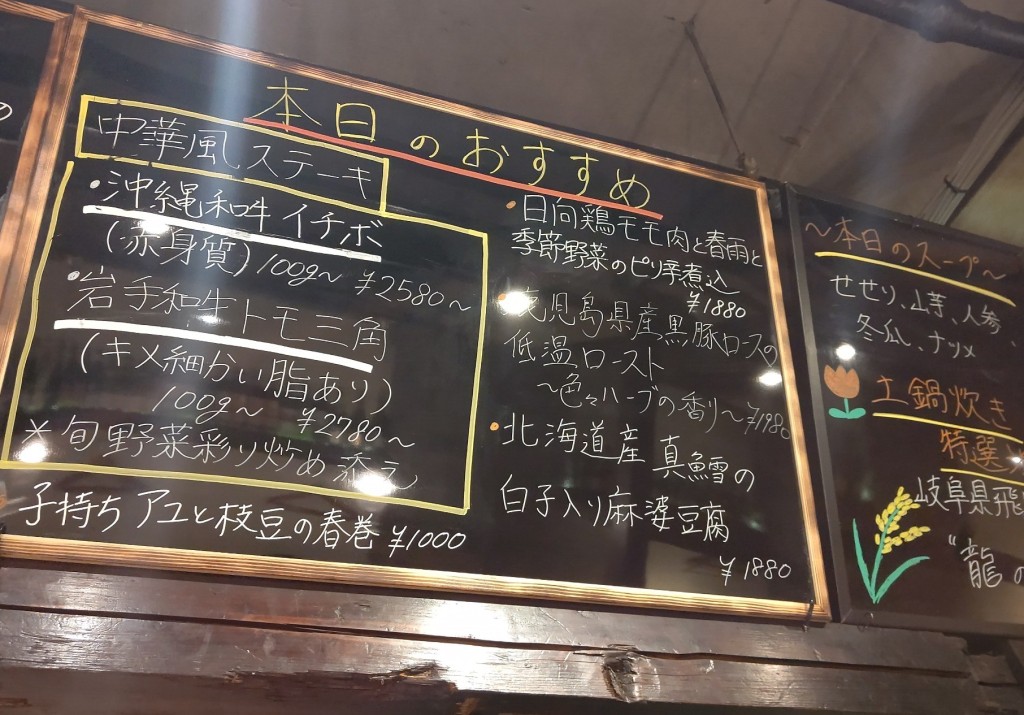 本日のおすすめ
中華風ステーキ
・沖縄和牛イチボ
(赤身質)100g〜 ¥2580〜
・岩手和牛トモ三角
(キメ細かい脂あり)
100g〜 ¥2780〜
※旬野菜彩り炒め添え
子持ちアユと枝豆の春巻 ¥1000
・日向鶏モモ肉と春雨と
季節野菜のピリ辛煮込
¥1880
鹿児島県産黒豚ロースの
低温ロースト
〜色々ハーブの香り〜¥1980
・北海道産 真鱈の
白子入り麻婆豆腐
¥1880
〜本日のスープ〜
せせり、山芋、人参、
冬瓜、ナツメ
土鍋炊き
特選
岐阜県飛
"龍の